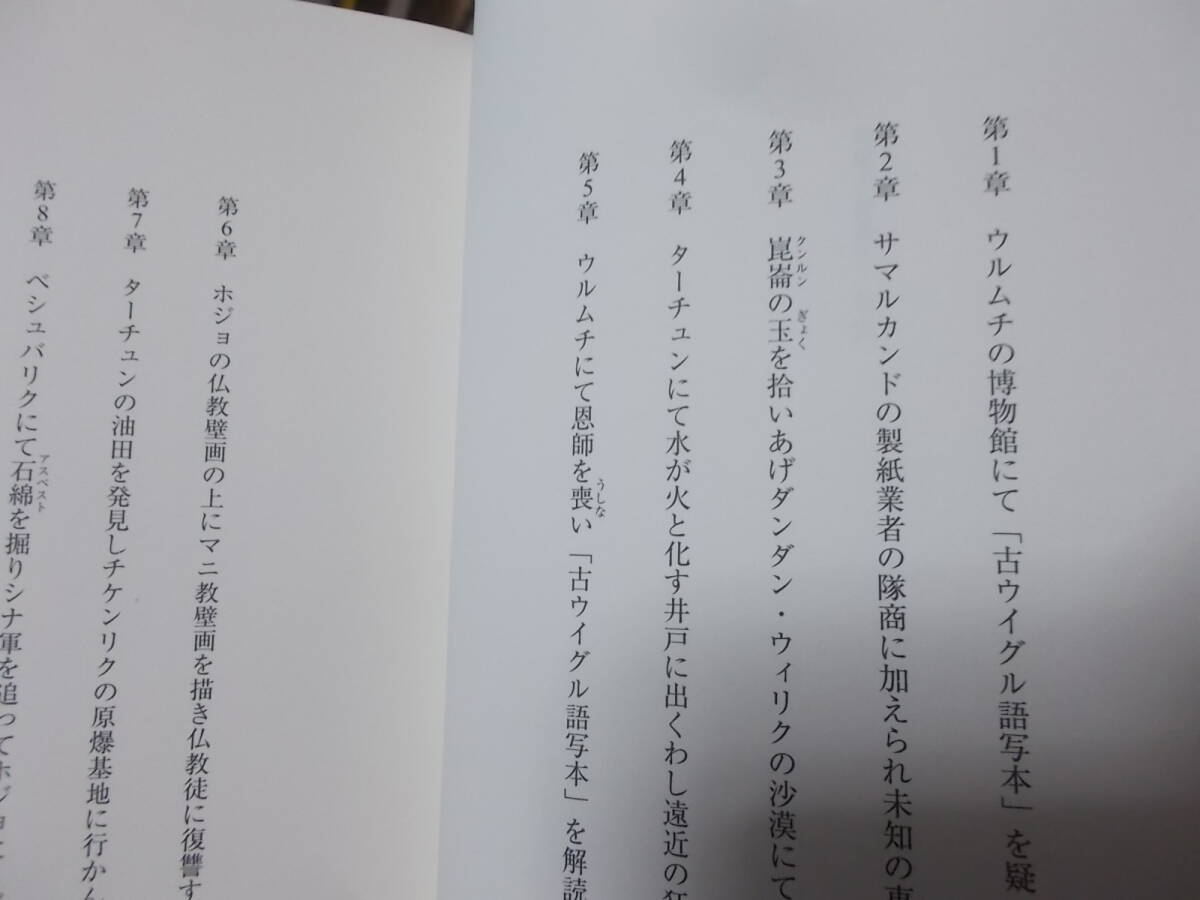 第1章 ウルムチの博物館にて「古ウイグル語写本」を疑
第2章 サマルカンドの製紙業者の隊商に加えられ未知の東
第3章 崑崙の玉を拾いあげダンダン・ウィリクの沙漠にて
クンルン
ぎょく
第4章 ターチュンにて水が火と化す井戸に出くわし遠近の
第5章 ウルムチにて恩師を喪い「古ウイグル語写本」を解読
うしな
第6章 ホジョの仏教壁画の上にマニ教壁画を描き仏教徒に復讐す
第7章 ターチュンの油田を発見しチケンリクの原爆基地に行かん
第8章 ベシュバリクにて石綿を掘りシナ軍を追ってホジョ
アスベスト